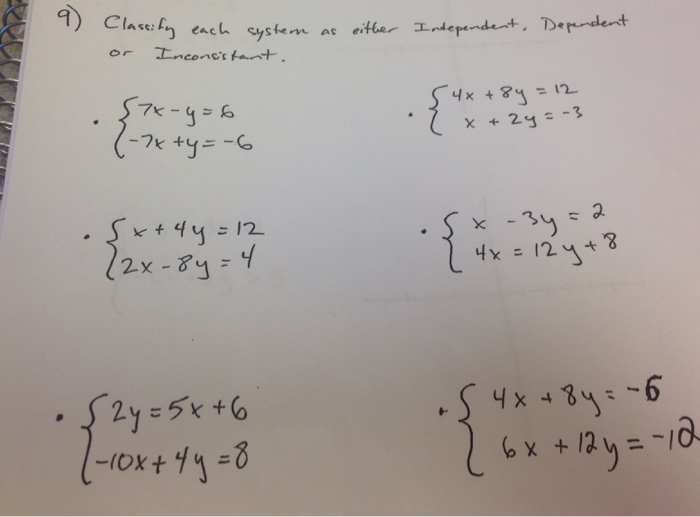 9) Classify each system as either Independent, Dependent
or Inconsistant.
• { 7x - y = 6
-7x + y = -6
• { 4x + 8y = 12
x + 2y = -3
• { x + 4y = 12
2x - 8y = 4
• { x - 3y = 2
4x = 12y + 8
• { 2y = 5x + 6
-10x + 4y = 8
• { 4x + 8y = -6
6x + 12y = -12